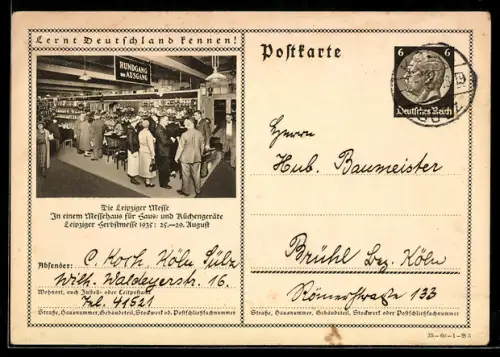 Lernt Deutschland kennen!
RUNDGANG
UND AUSGANG
Die Leipziger Messe
In einem Messehaus für Haus- und Küchengeräte
Leipziger Herbstmesse 1935: 25.-29. August
Absender: C. Koch, Köln Sülz
Wilh. Waldeyerstr. 16.
Wohnort, auch Zustell- oder Leitpostamt
Tel. 41521
Straße, Hausnummer, Gebäudeteil, Stockwerk oder Postschließfachnummer
Postkarte
6 6
Deutsches Reich
Herrn
Hub. Baumeister
Brühl Bez. Köln
Römerstrasse 133
Straße, Hausnummer, Gebäudeteil, Stockwerk oder Postschließfachnummer